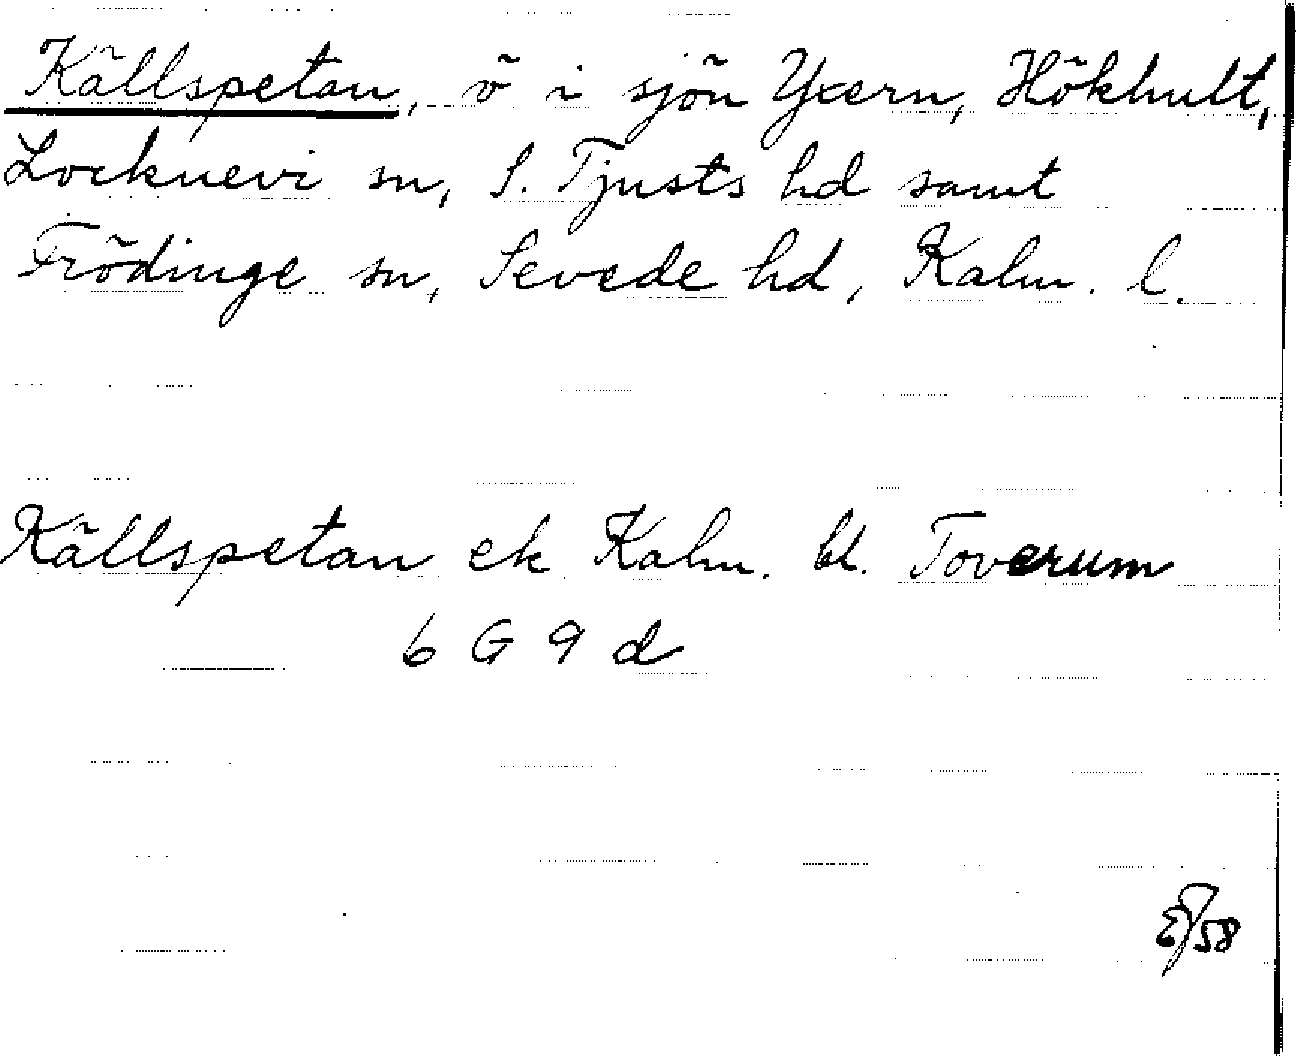 Källspetan, ö i sjön Yxern, Hökhult,
Locknevi sn, S. Tjusts hd samt
Frödinge sn, Sevede hd, Kalm. l.
Källspetan ek Kalm. bl. Toverum
6 G 9 d
/58